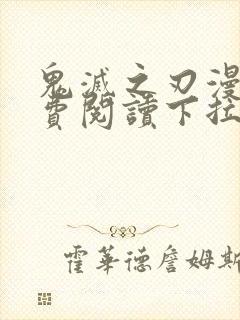 鬼滅之刃漫
費閱讀下拉
霍華德詹姆斯